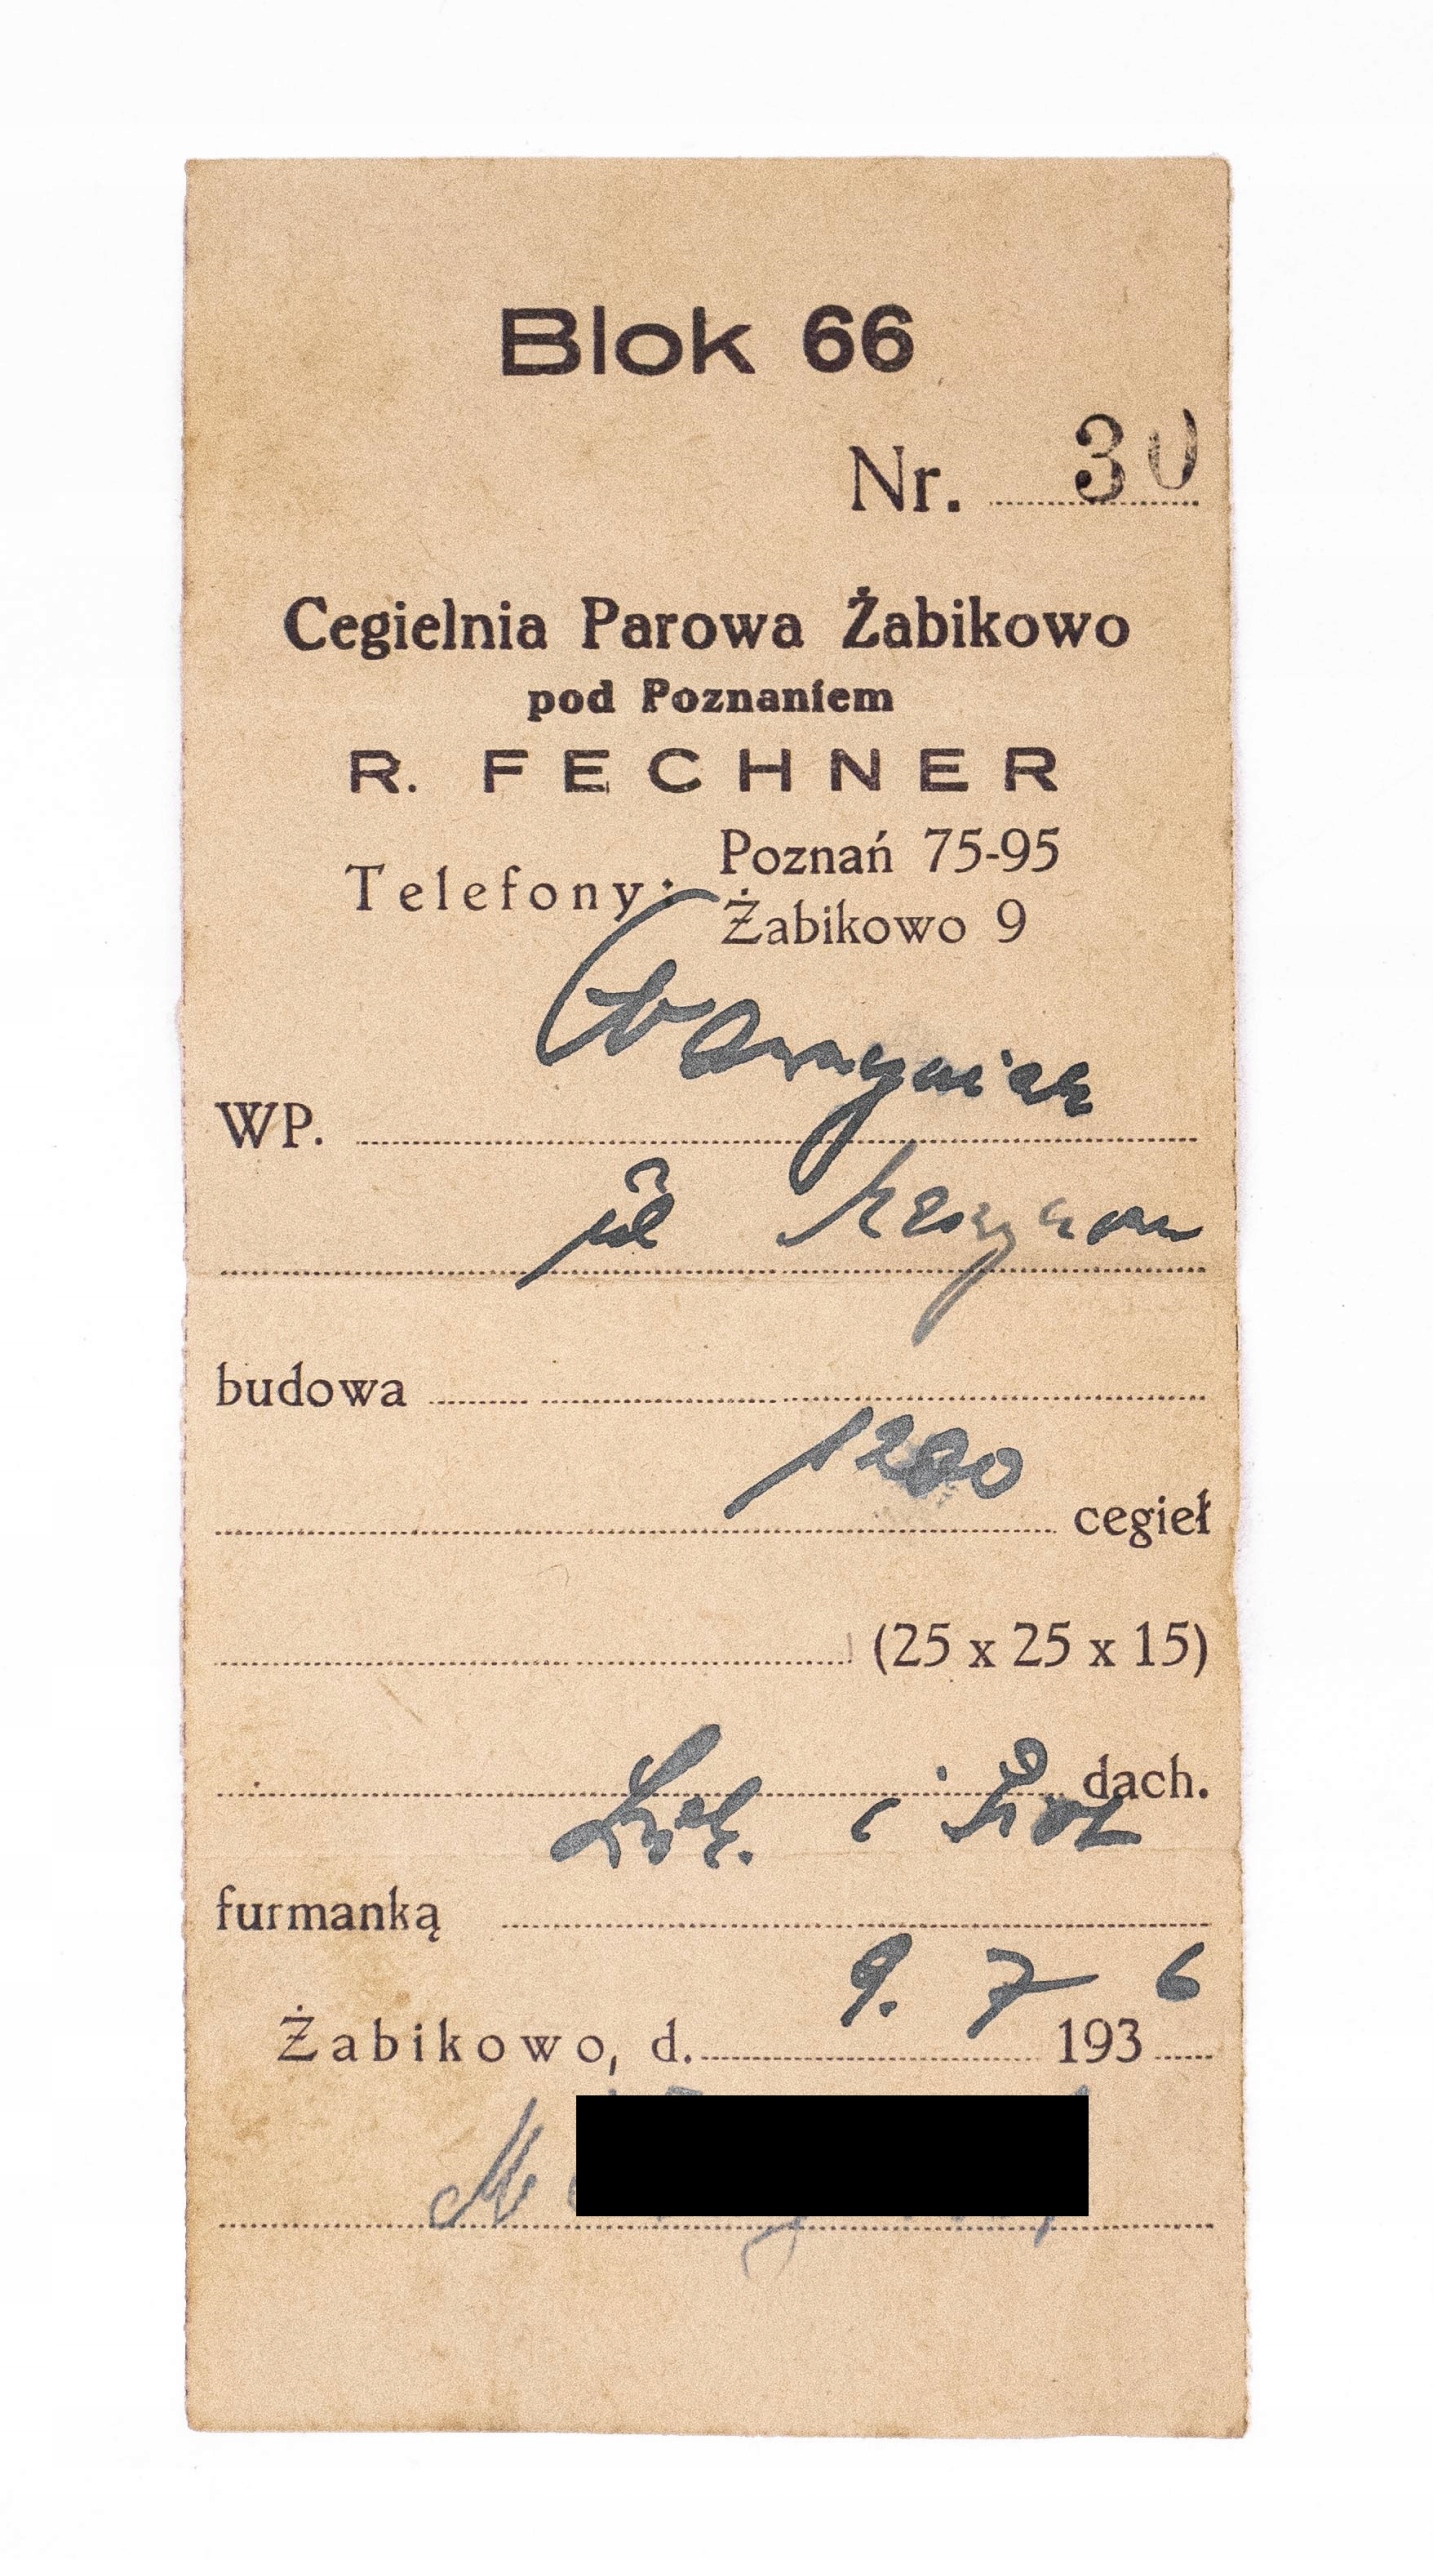 Blok 66
Nr. 30
Cegielnia Parowa Żabikowo
pod Poznaniem
R. FECHNER
Telefony: Poznań 75-95
Żabikowo 9
WP. Wawrzyniak
budowa
1200 cegieł
(25 x 25 x 15)
dach.
furmanką i
Żabikowo, d. 9. 7 1936